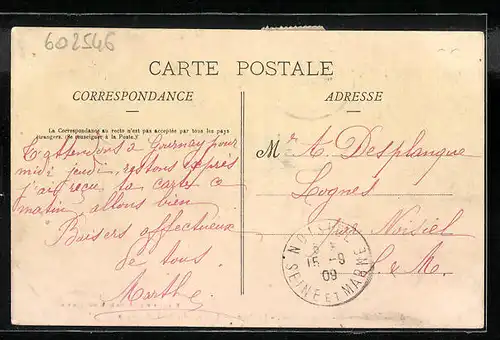 602546
CARTE POSTALE
CORRESPONDANCE
ADRESSE
La Correspondance au recto n'est pas acceptée par tous les pays
étrangers. (Se renseigner à la Poste.)
T'attendons à Gournay pour
midi jeudi, restons exprès
j'ai reçu ta carte ce
matin, allons bien
Baisers affectueux
de tous
Marthe
Mr A. Desplanque
Lognes
par Noisiel
S. & M.
NOISIEL
15 -9
09
SEINE ET MARNE